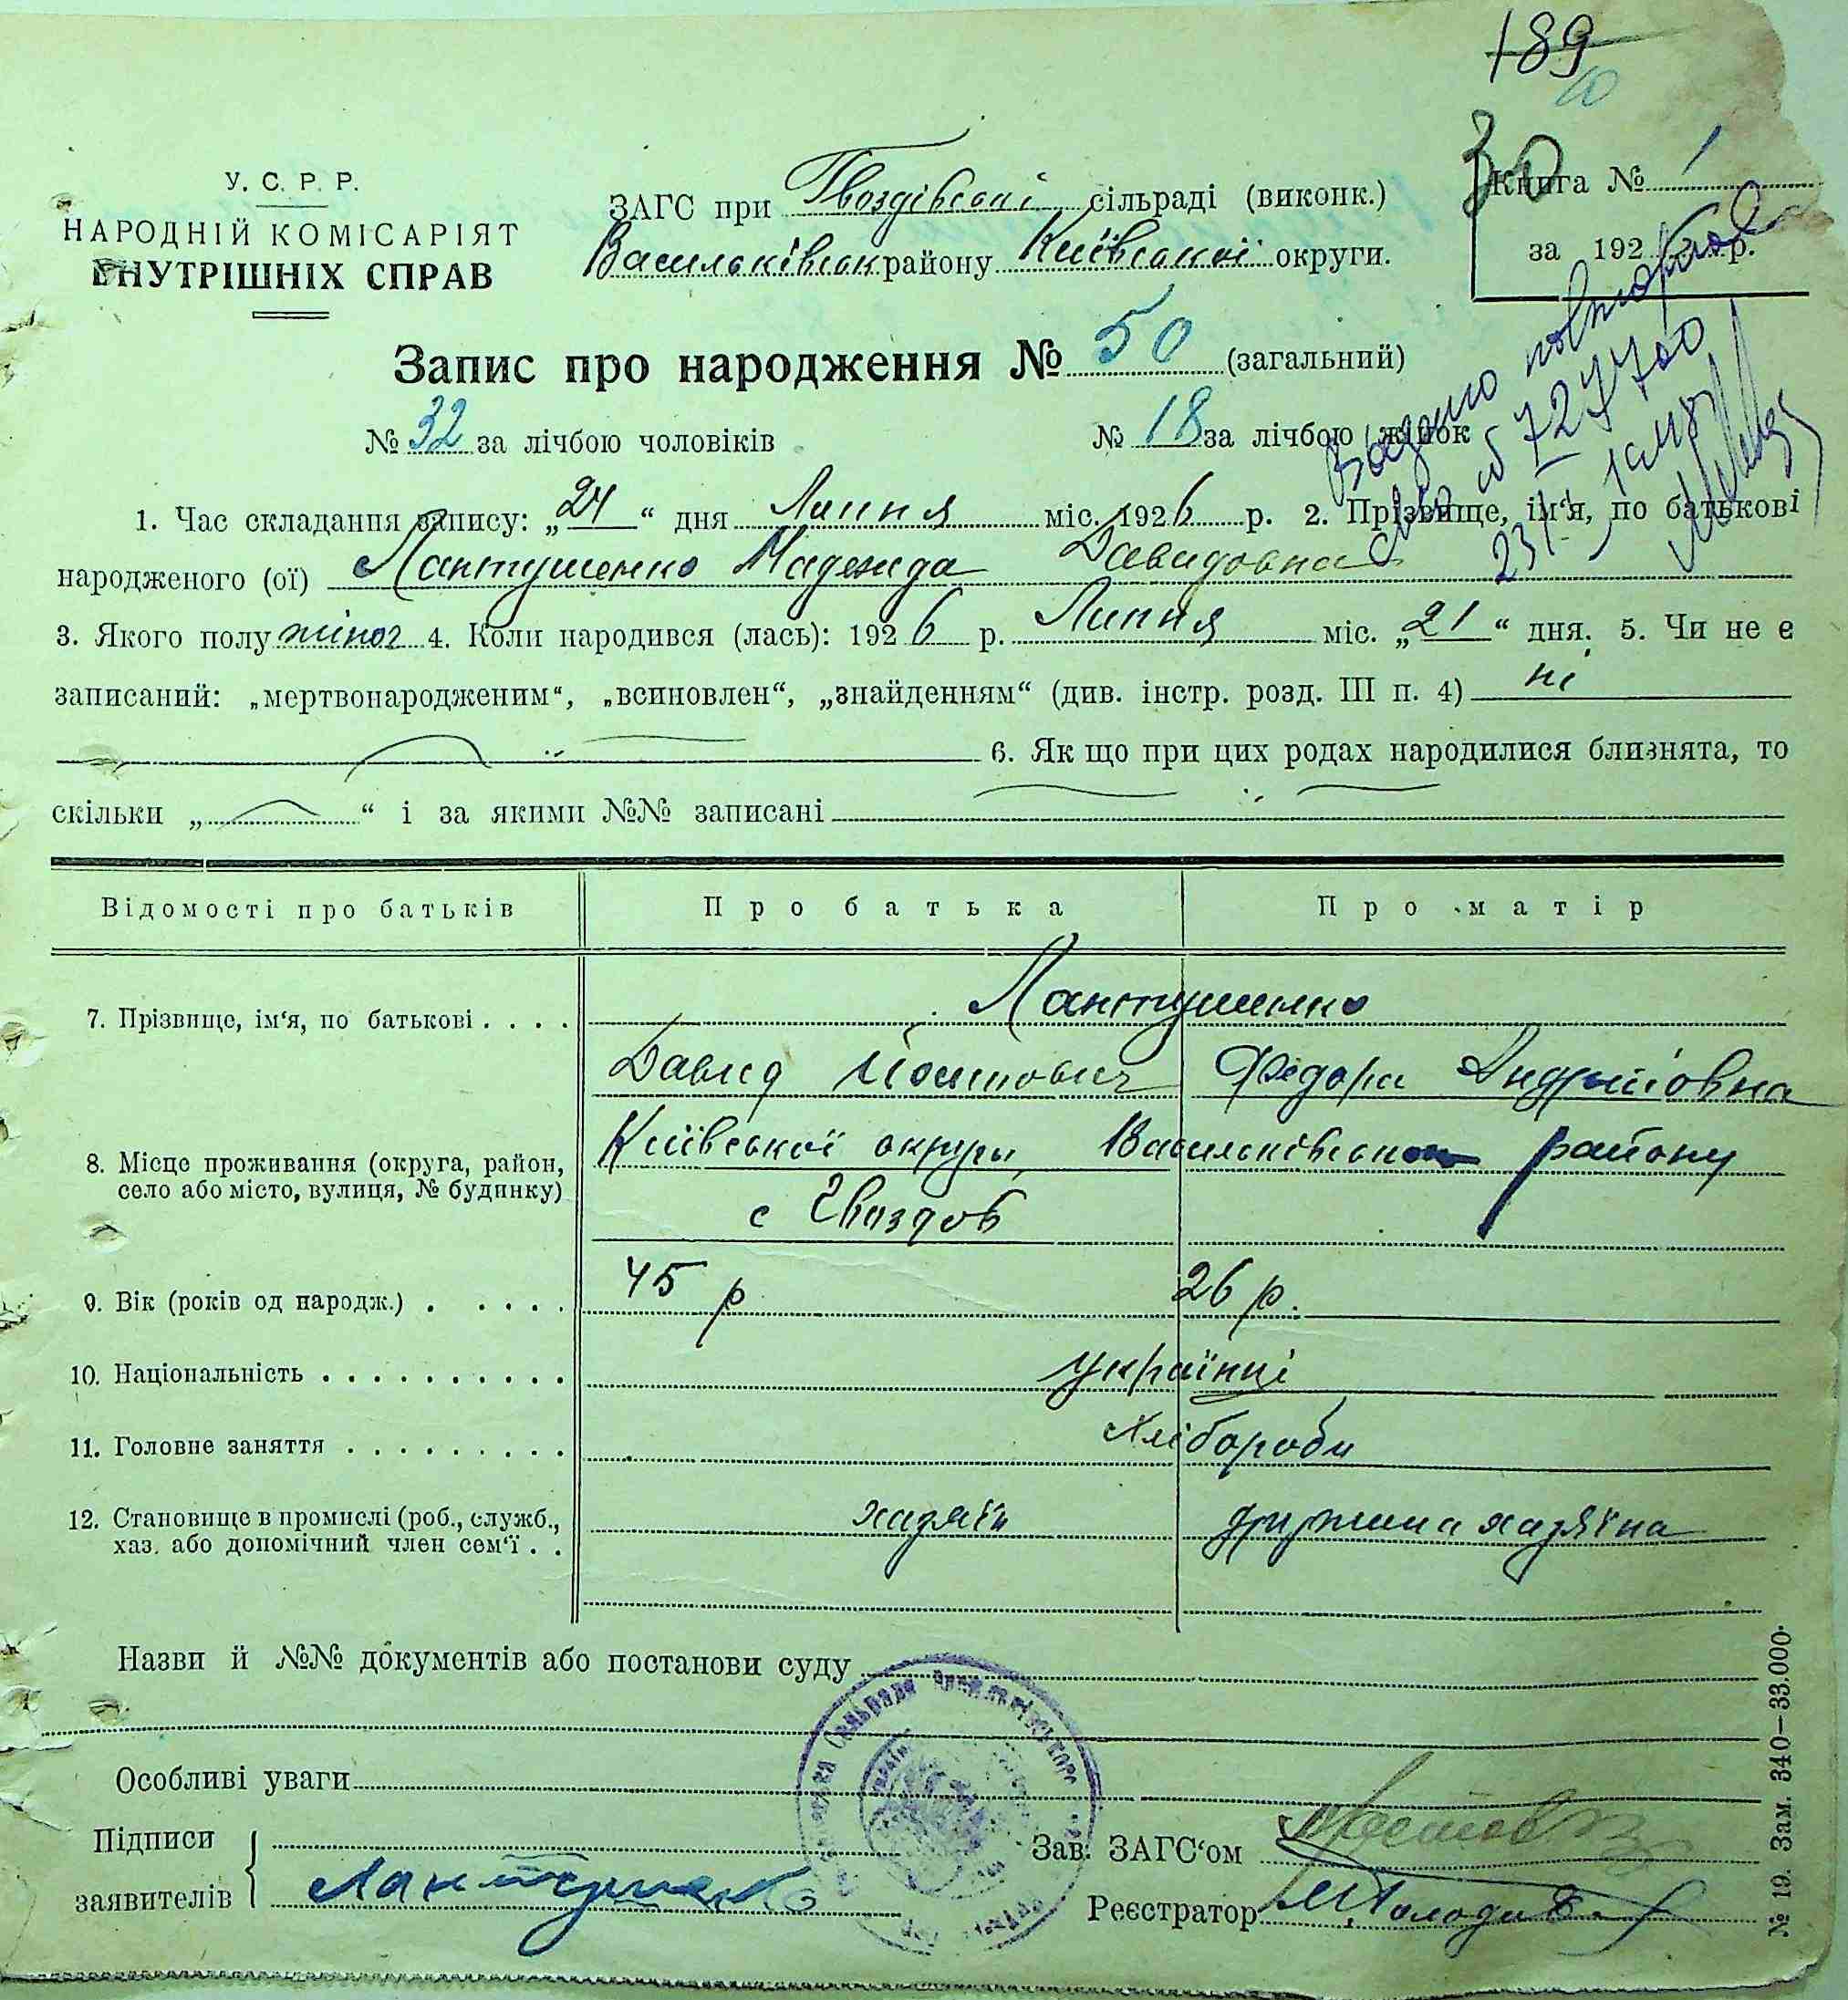 189
30
У. С. Р. Р.
НАРОДНІЙ КОМІСАРІЯТ
ВНУТРІШНІХ СПРАВ
ЗАГС при Гвоздівські сільраді (виконк.)
Васильківськ району Київської округи.
Книга № 1
за 192 р.
Запис про народження № 50 (загальний)
№ 32 за лічбою чоловіків
№ 18 за лічбою жінок
Видано повторно
727700
1. Час складання запису: „24“ дня Липня міс. 1926 р. 2. Прізвище, ім‘я, по батькові
народженого (ої) Лантушенко Надежда Давидовна
3. Якого полу жіноч 4. Коли народився (лась): 1926 р. Липня міс. „21“ дня. 5. Чи не є
записаний: „мертвонародженим“, „всиновлен“, „знайденням“ (див. інстр. розд. III п. 4) ні
6. Як що при цих родах народилися близнята, то
скільки „ “ і за якими №№ записані
Відомості про батьків Про батька Про матір
7. Прізвище, ім‘я, по батькові . . . . Лантушенко
Давид Йосипович Федора Андрыіовна
8. Місце проживання (округа, район, село або місто, вулиця, № будинку) Київської округи, Васильківськ району
с Гвоздов
9. Вік (років од народж.) . . . . . 45 р 26 р.
10. Національність . . . . . . . . . . українці
11. Головне заняття . . . . . . . . . Хлібороби
12. Становище в промислі (роб., служб., хаз. або допомічний член сем‘ї . . хазяїн дружина хазяїна
Назви й №№ документів або постанови суду
Особливі уваги
Підписи
заявителів Лантушенко
Зав. ЗАГС‘ом
Реєстратор
№ 19. Зам. 340—33.000.